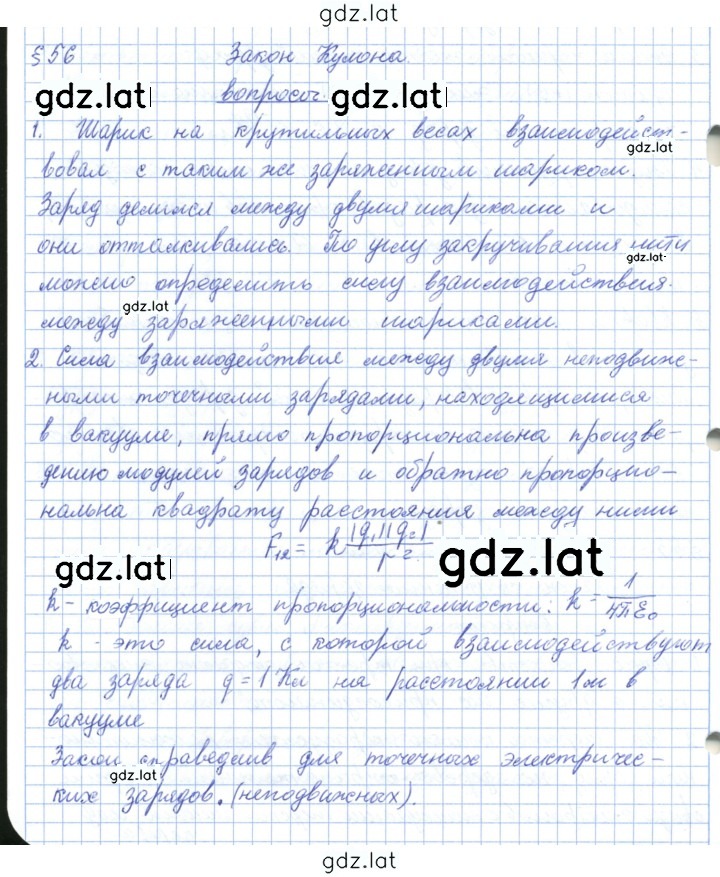 gdz.lat
§ 56 Закон Кулона.
gdz.lat вопросы gdz.lat
1. Шарик на крутильных весах взаимодейст-
gdz.lat
вовал с таким же заряженным шариком.
Заряд делился между двумя шариками и
они отталкивались. По углу закручивания нити
gdz.lat
можно определить силу взаимодействия.
gdz.lat
между заряженными шариками.
2. Сила взаимодействие между двумя неподвиж-
ными точечными зарядами, находящимися
в вакууме, прямо пропорциональна произве-
дению модулей зарядов и обратно пропорцио-
нальна квадрату расстояния между ними
F₁₂ = k |q₁||q₂| / r²
gdz.lat gdz.lat
k - коэффициент пропорциональности: k = 1 / 4πε₀
k - это сила, с которой взаимодействуют
два заряда q = 1 Кл на расстоянии 1м в
вакууме
Закон справедлив для точечных электричес-
gdz.lat
ких зарядов. (неподвижных).
gdz.lat